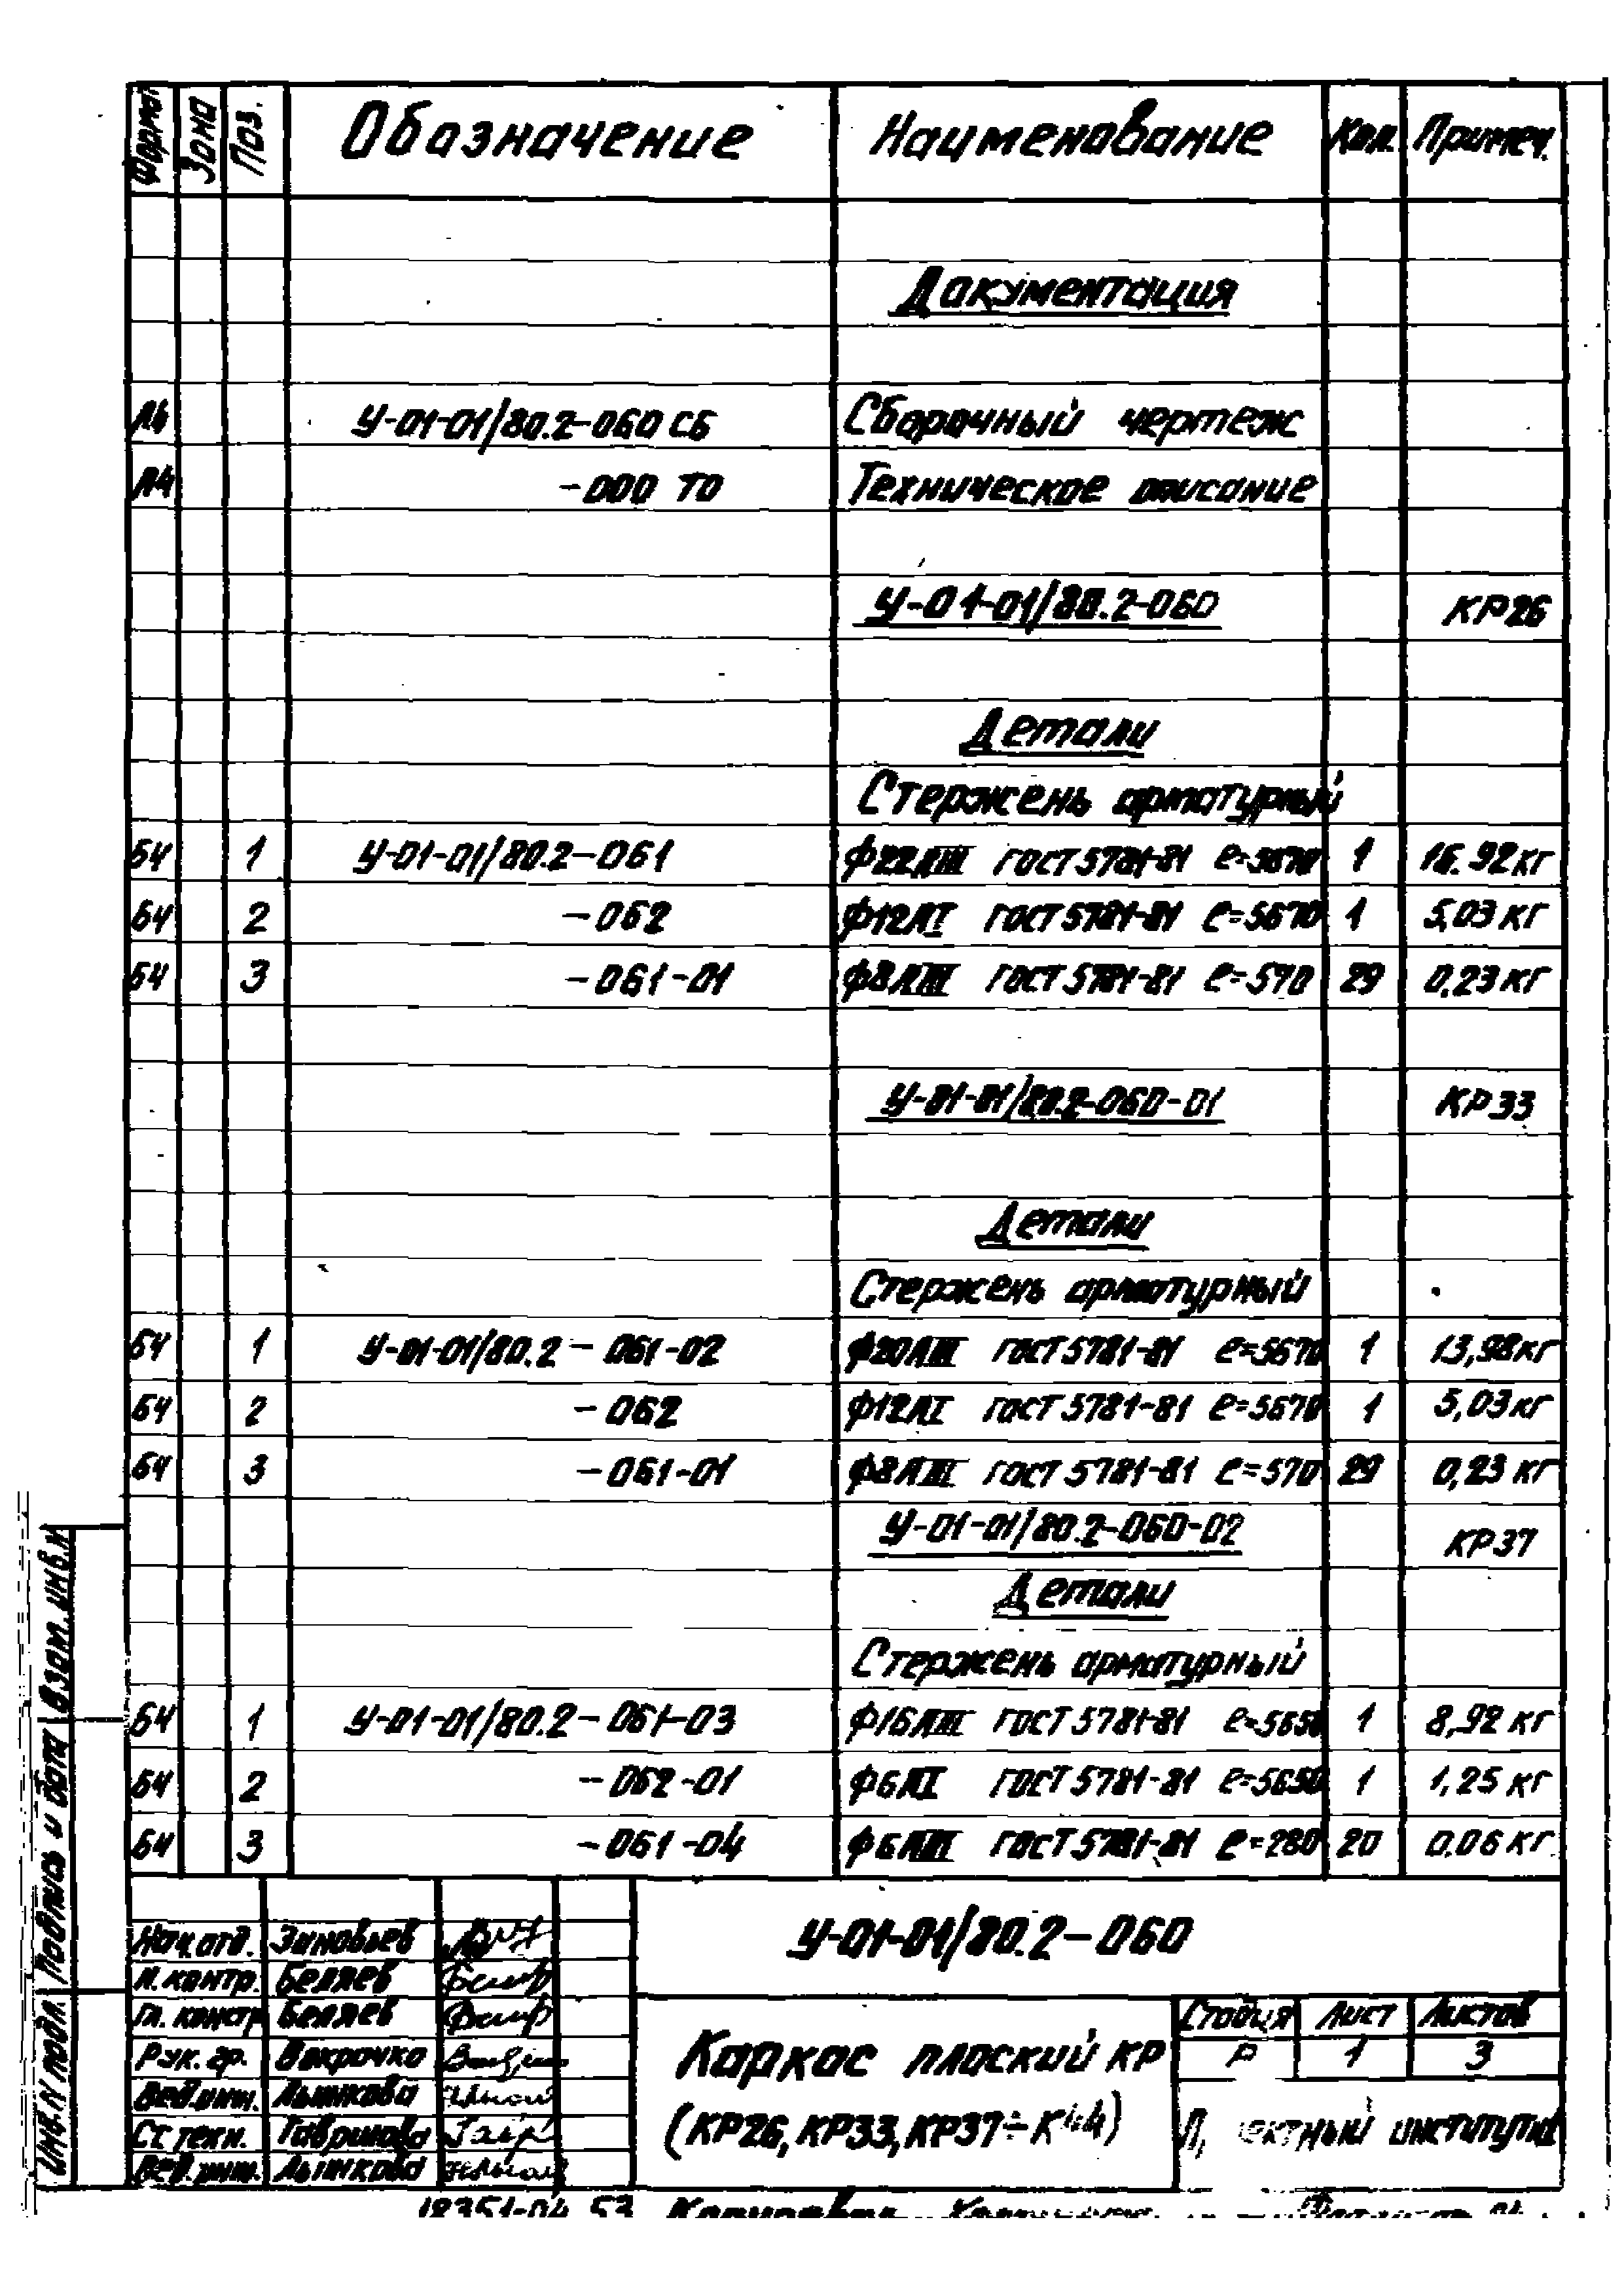 Формат Зона Поз. Обозначение Наименование Кол. Примеч.
Документация
У-01-01/80.2-060 СБ Сборочный чертеж
А4 -000 ТО Техническое описание
У-01-01/80.2-060 КР26
Детали
Стержень арматурный
БЧ 1 У-01-01/80.2-061 Ф22АIII ГОСТ 5781-81 ℓ=5670 1 16.92 кг
БЧ 2 -062 Ф12АI ГОСТ 5781-81 ℓ=5670 1 5,03 кг
БЧ 3 -061-01 Ф8АIII ГОСТ 5781-81 ℓ=570 29 0,23 кг
У-01-01/80.2-060-01 КР33
Детали
Стержень арматурный
БЧ 1 У-01-01/80.2-061-02 Ф20АIII ГОСТ 5781-81 ℓ=5670 1 13,98 кг
БЧ 2 -062 Ф12АI ГОСТ 5781-81 ℓ=5670 1 5,03 кг
БЧ 3 -061-01 Ф8АIII ГОСТ 5781-81 ℓ=570 29 0,23 кг
У-01-01/80.2-060-02 КР37
Детали
Стержень арматурный
БЧ 1 У-01-01/80.2-061-03 Ф16АIII ГОСТ 5781-81 ℓ=5650 1 8,92 кг
БЧ 2 -062-01 Ф6АI ГОСТ 5781-81 ℓ=5650 1 1,25 кг
БЧ 3 -061-04 Ф6АIII ГОСТ 5781-81 ℓ=280 20 0.06 кг
Взам. инв. N
Подпись и дата
Инв. N подл.
Нач. отд. Зиновьев
Н. контр. Беляев
Гл. констр. Беляев
Рук. гр.
Вед. инж. Лышкова
Ст. техн.
Вед. инж. Лышкова
У-01-01/80.2-060
Каркас плоский КР
(КР26, КР33, КР37÷КР44)
Стадия Лист Листов
Р 1 3
институт
18351-04 53 Копировал